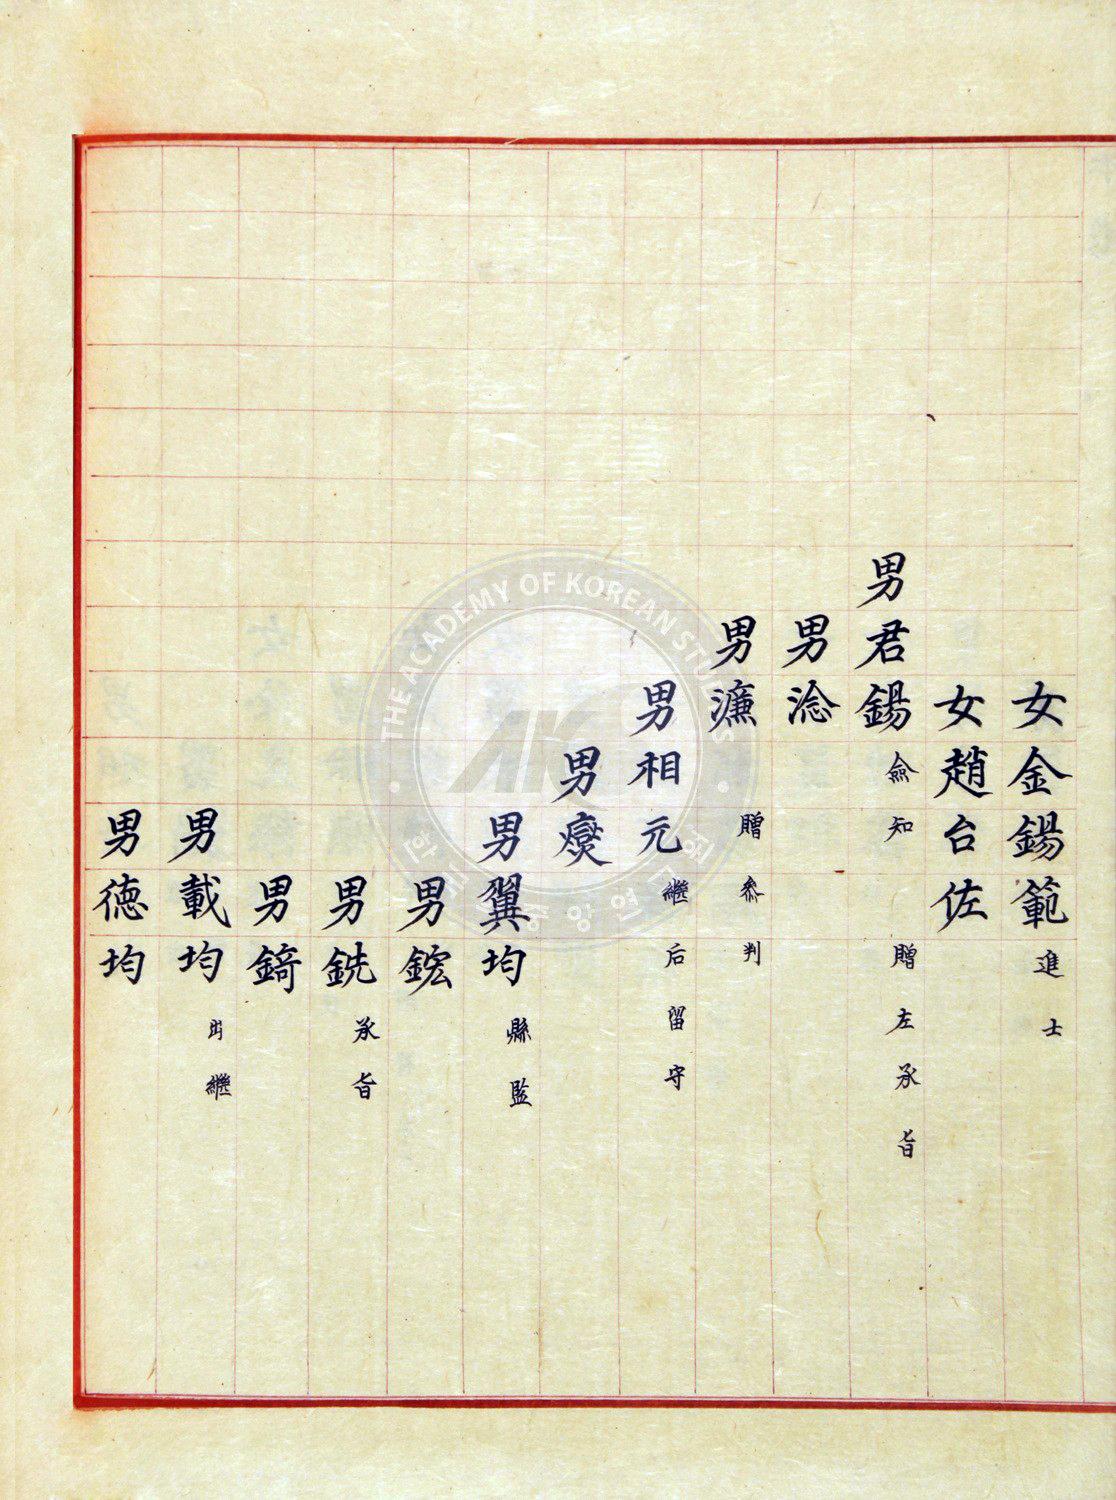 女金錫範進士
女趙台佐
男君錫僉知 贈左承旨
男淰
男濂 贈參判
男相元繼后留守
男
男翼均縣監
男鋐
男銑承旨
男錡
男載均出繼
男德均
THE ACADEMY OF KOREAN STUDIES
AK
한국학중앙연구원